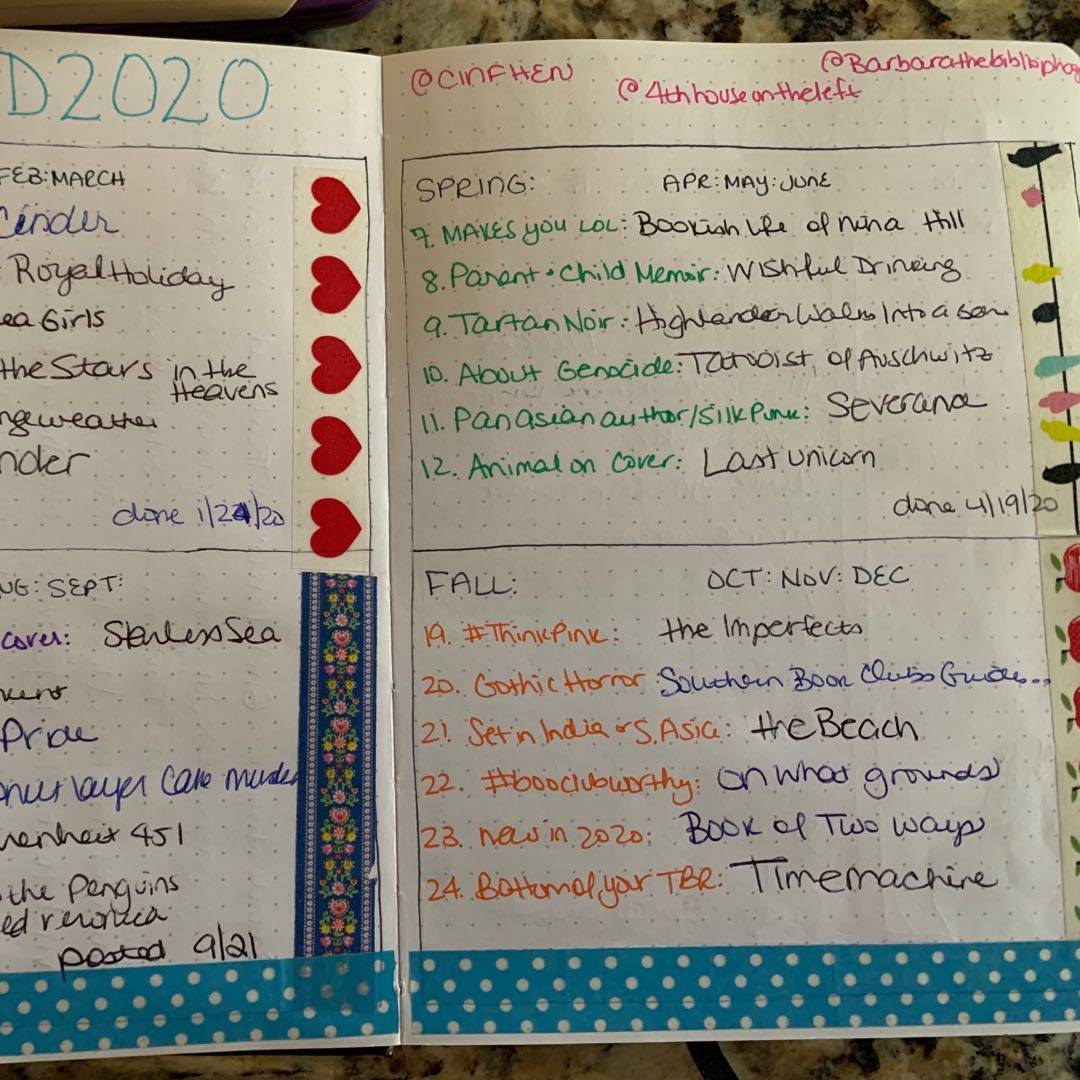 D2020
FEB:MARCH
Cinder
Royal Holiday
ea Girls
the Stars in the
Heavens
ngweather
nder
done 1/24/20
UG: SEPT:
cover: Starless Sea
Pride
Layer Cake Murder
renheit 451
the Penguins
ed veronica
posted 9/21
@CINFHEN
@Barbarathebibliophag
@4thhouseontheleft
SPRING: APR:MAY:JUNE
7. MAKES you LOL: Bookish Life of Nina Hill
8. Parent·Child Memoir: Wishful Drinking
9. Tartan Noir: Highlander Walks Into a Bar
10. About Genocide: Tatooist of Auschwitz
11. Pan asian author/Silk Punk: Severance
12. Animal on Cover: Last Unicorn
done 4/19/20
FALL: OCT: NOV: DEC
19. #ThinkPink: the Imperfects
20. Gothic Horror: Southern Book Clubs Guide...
21. Set in India or S. Asia: the Beach
22. #booclubworthy: on what grounds
23. new in 2020: Book of Two ways
24. Bottom of your TBR: Timemachine